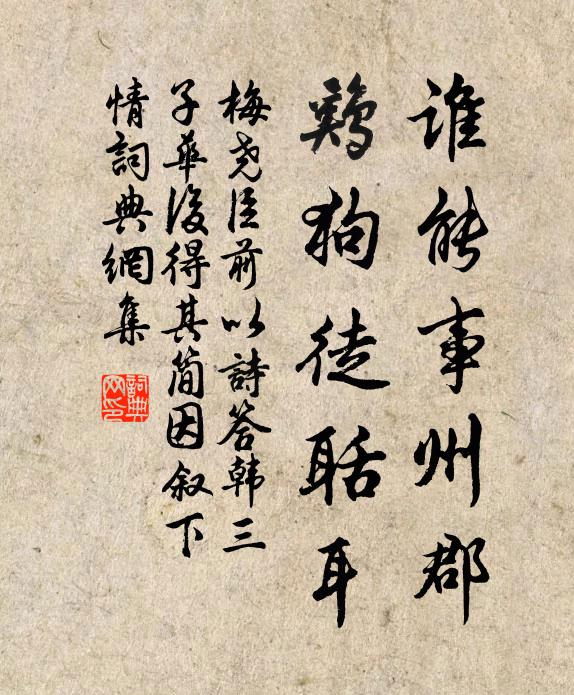 誰能事州郡
鷄狗徒聒耳
梅尭臣前以詩答韩三
子華後得其简因叙下
情詞典網集
詞典
网印